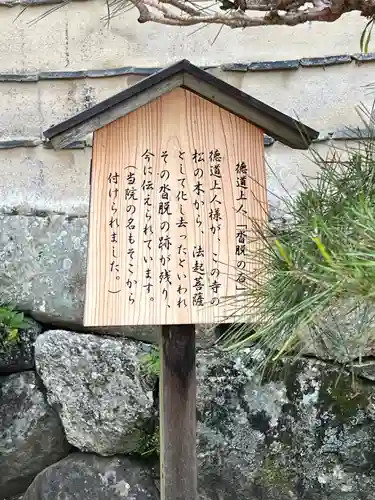 徳道上人 沓脱の石
徳道上人様が、この寺の
松の木から、法起菩薩
として化し去ったといわれ
その沓脱の跡が残り、
今に伝えられています。
（当院の名もそこから
付けられました。）